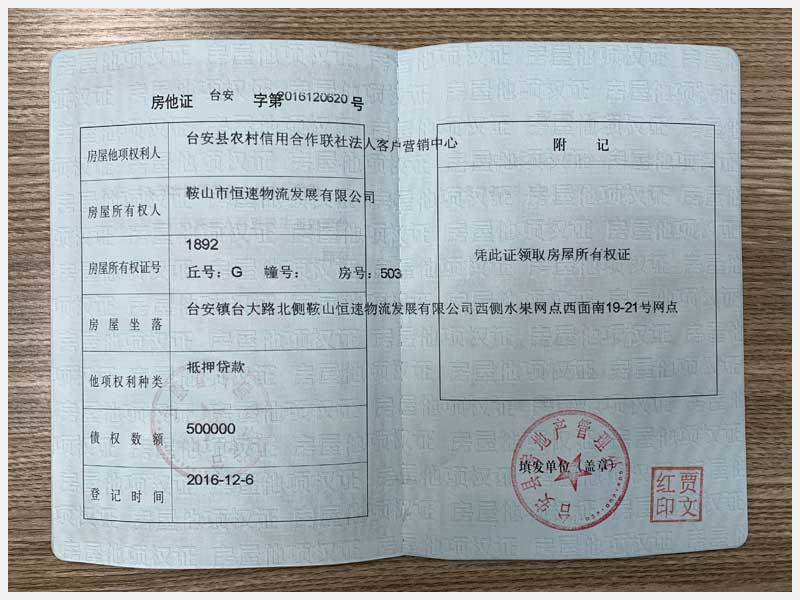 房他证 台安 字第2016120620号
房屋他项权利人 台安县农村信用合作联社法人客户营销中心
房屋所有权人 鞍山市恒速物流发展有限公司
房屋所有权证号 1892
丘号：G 幢号： 房号：503
房屋坐落 台安镇台大路北侧鞍山恒速物流发展有限公司西侧水果网点西面南19-21号网点
他项权利种类 抵押贷款
债权数额 500000
登记时间 2016-12-6
附 记
凭此证领取房屋所有权证
填发单位（盖章）
台安县房地产管理处
贾文红印